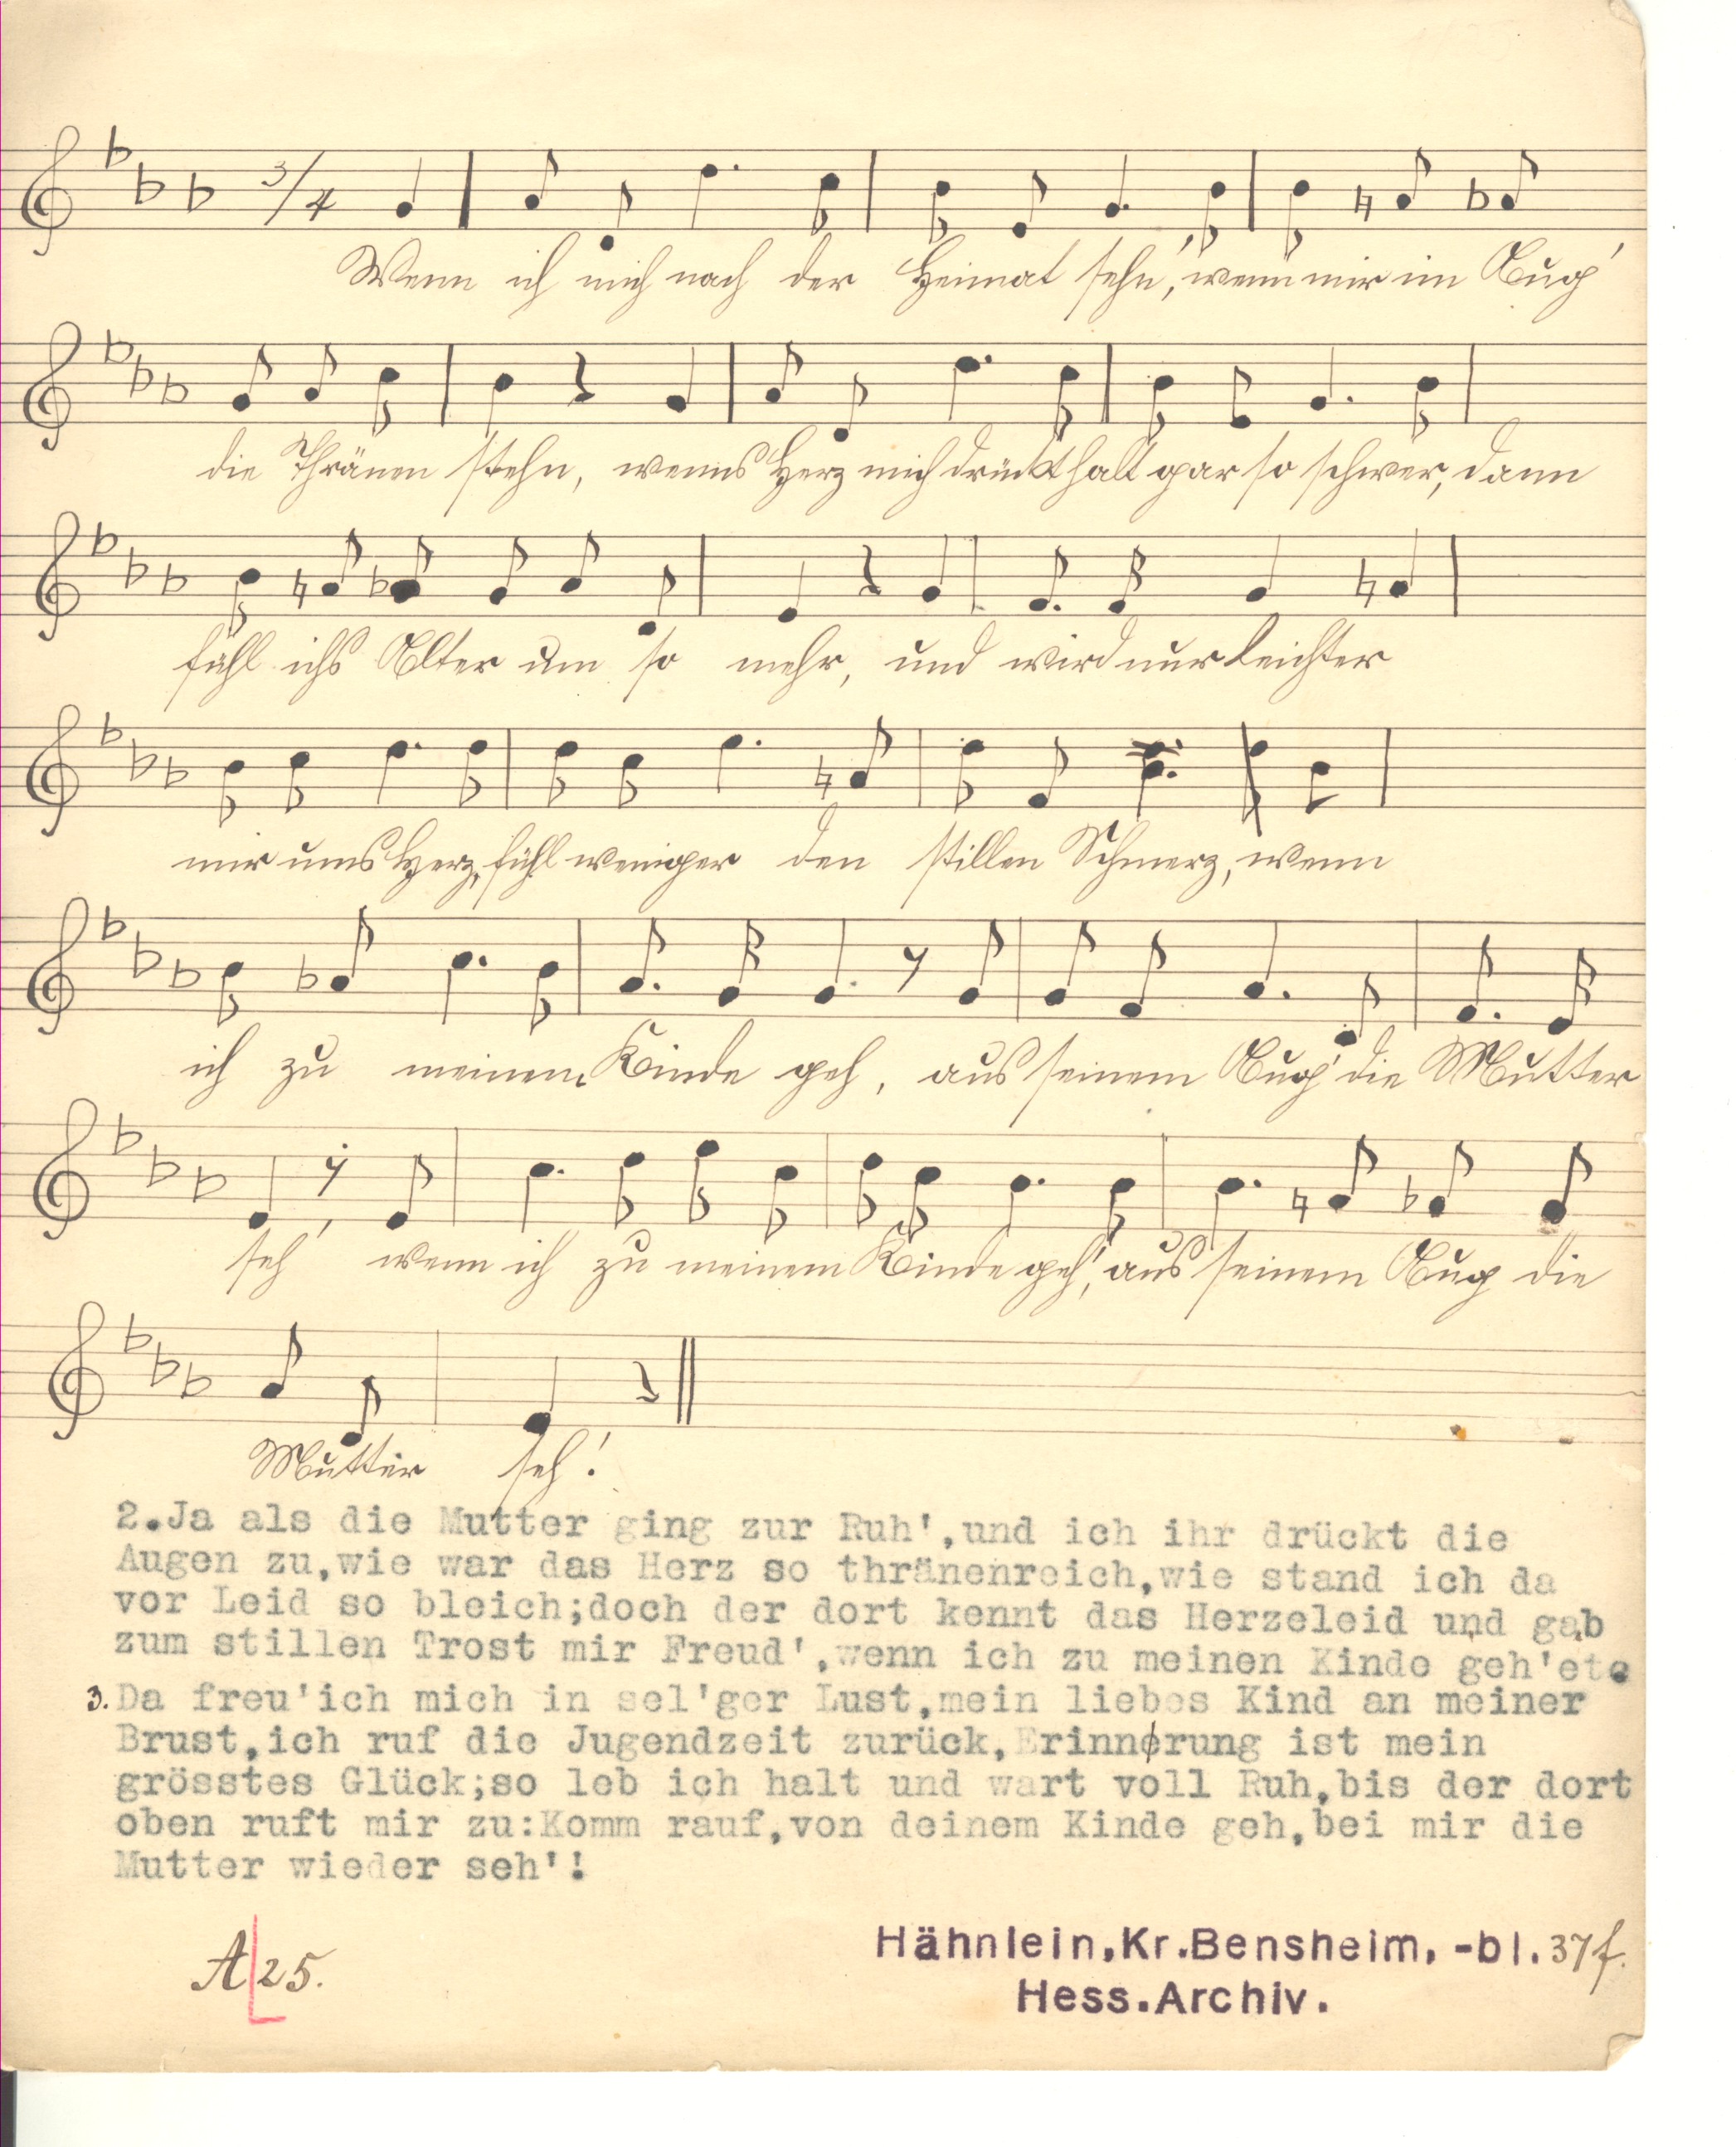 3/4
Wenn ich mich nach der Heimat sehn', wenn mir im Aug'
die Thränen stehn, wenns Herz mich drückt halt gar so schwer, dann
fühl ichs Alter um so mehr, und wird nur leichter
mir ums Herz, fühl weniger den stillen Schmerz, wenn
ich zu meinem Kinde geh, aus seinem Aug' die Mutter
seh' wenn ich zu meinem Kinde geh', aus seinem Aug die
Mutter seh'!
2.Ja als die Mutter ging zur Ruh',und ich ihr drückt die
Augen zu,wie war das Herz so thränenreich,wie stand ich da
vor Leid so bleich;doch der dort kennt das Herzeleid und gab
zum stillen Trost mir Freud',wenn ich zu meinen Kinde geh'etc
3.Da freu'ich mich in sel'ger Lust,mein liebes Kind an meiner
Brust,ich ruf die Jugendzeit zurück,Erinnerung ist mein
grösstes Glück;so leb ich halt und wart voll Ruh,bis der dort
oben ruft mir zu:Komm rauf,von deinem Kinde geh,bei mir die
Mutter wieder seh'!
A 25.
Hähnlein,Kr.Bensheim, -bl.37f.
Hess.Archiv.